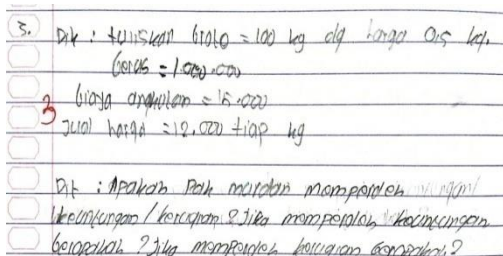 3. Dik : tuliskan bruto = 100 kg dg harga 0,5 kg.
beras = 1.000.000
3 biaya angkutan = 15.000
Jual harga = 12.000 tiap kg
Dit : Apakah Pak mardan memperoleh
keuntungan / kerugian ? Jika memperoleh keuntungan
berapakah ? Jika memperoleh kerugian berapakah?